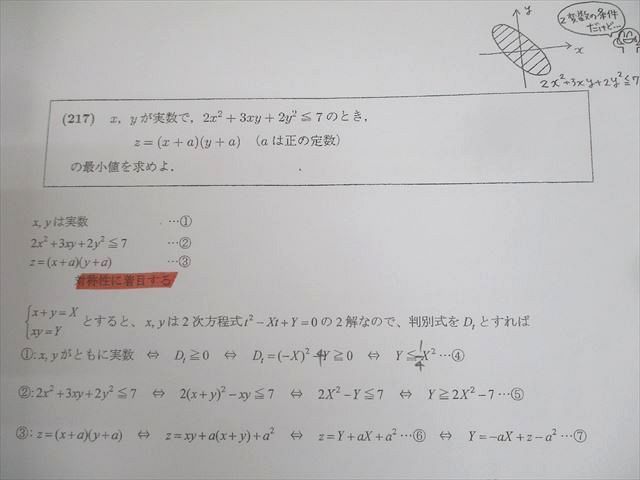 y
2変数の条件
だけど…
x
2x²+3xy+2y²≦7
(217) x, yが実数で, 2x²+3xy+2y²≦7のとき,
z=(x+a)(y+a) (aは正の定数)
の最小値を求めよ.
x, yは実数 …①
2x²+3xy+2y²≦7 …②
z=(x+a)(y+a) …③
対称性に着目する
{x+y=X
xy=Y とすると、x, yは2次方程式t²-Xt+Y=0の2解なので、判別式をDₜとすれば
①: x, yがともに実数 ⇔ Dₜ≧0 ⇔ Dₜ=(-X)²-4Y≧0 ⇔ Y≦1/4X²…④
②: 2x²+3xy+2y²≦7 ⇔ 2(x+y)²-xy≦7 ⇔ 2X²-Y≦7 ⇔ Y≧2X²-7…⑤
③: z=(x+a)(y+a) ⇔ z=xy+a(x+y)+a² ⇔ z=Y+aX+a²…⑥ ⇔ Y=-aX+z-a²…⑦